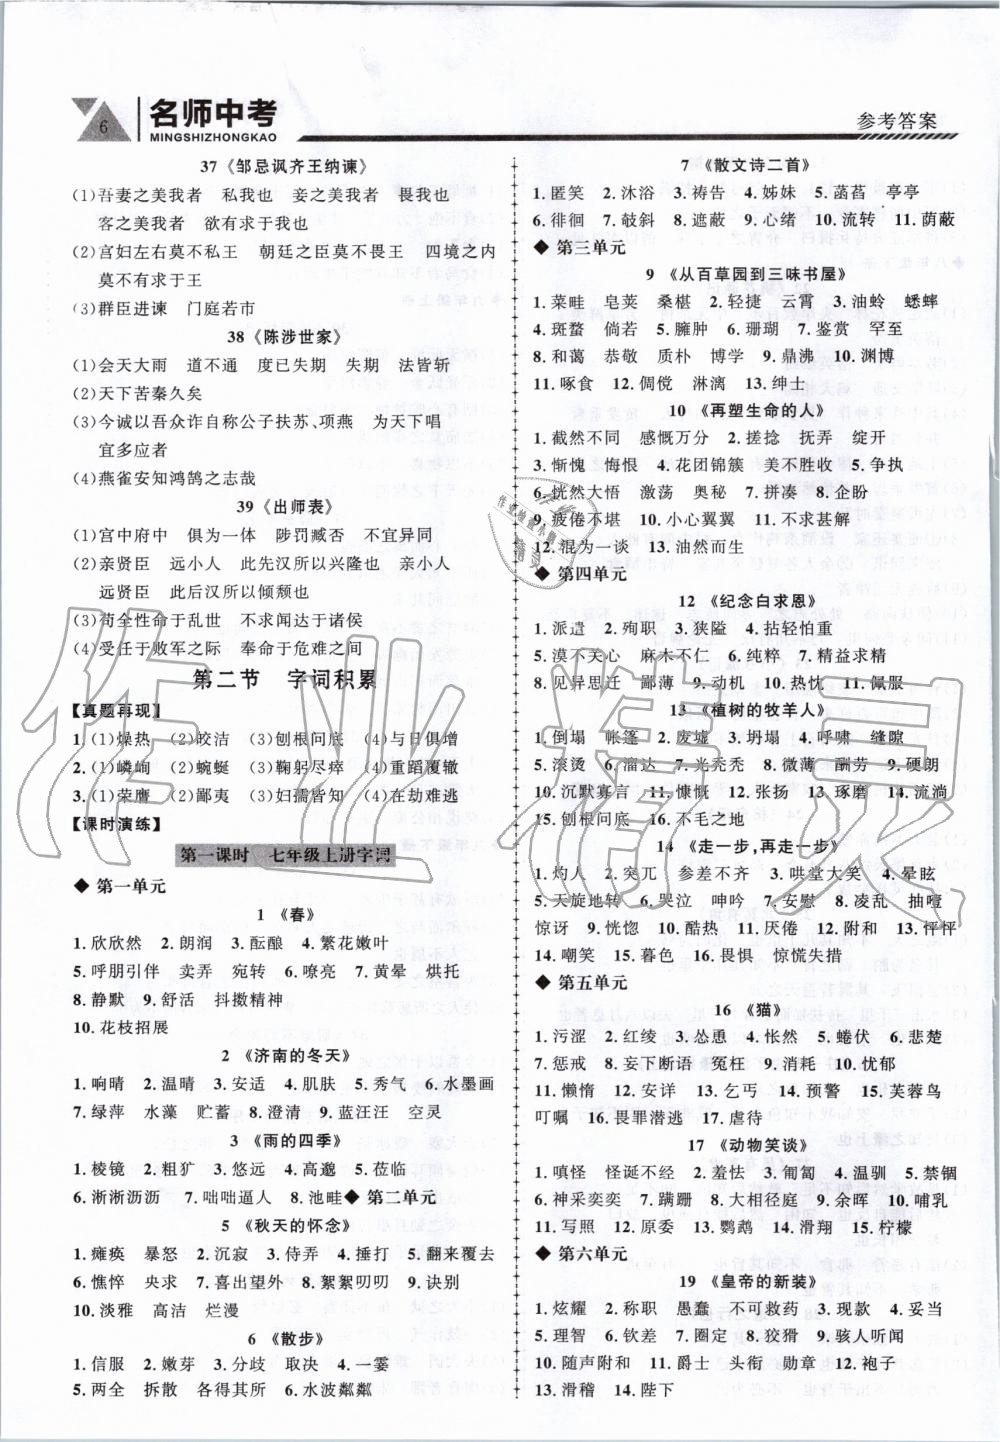 6
名师中考
MINGSHIZHONGKAO
参考答案
37《邹忌讽齐王纳谏》
(1)吾妻之美我者　私我也　妾之美我者　畏我也
客之美我者　欲有求于我也
(2)宫妇左右莫不私王　朝廷之臣莫不畏王　四境之内
莫不有求于王
(3)群臣进谏　门庭若市
38《陈涉世家》
(1)会天大雨　道不通　度已失期　失期　法皆斩
(2)天下苦秦久矣
(3)今诚以吾众诈自称公子扶苏、项燕　为天下唱
宜多应者
(4)燕雀安知鸿鹄之志哉
39《出师表》
(1)宫中府中　俱为一体　陟罚臧否　不宜异同
(2)亲贤臣　远小人　此先汉所以兴隆也　亲小人
远贤臣　此后汉所以倾颓也
(3)苟全性命于乱世　不求闻达于诸侯
(4)受任于败军之际　奉命于危难之间
第二节　字词积累
【真题再现】
1.(1)燥热　(2)皎洁　(3)刨根问底　(4)与日俱增
2.(1)嶙峋　(2)蜿蜒　(3)鞠躬尽瘁　(4)重蹈覆辙
3.(1)荣膺　(2)鄙夷　(3)妇孺皆知　(4)在劫难逃
【课时演练】
第一课时　七年级上册字词
◆ 第一单元
1 《春》
1. 欣欣然　2. 朗润　3. 酝酿　4. 繁花嫩叶
5. 呼朋引伴　卖弄　宛转　6. 嘹亮　7. 黄晕　烘托
8. 静默　9. 舒活　抖擞精神
10. 花枝招展
2 《济南的冬天》
1. 响晴　2. 温晴　3. 安适　4. 肌肤　5. 秀气　6. 水墨画
7. 绿萍　水藻　贮蓄　8. 澄清　9. 蓝汪汪　空灵
3 《雨的四季》
1. 棱镜　2. 粗犷　3. 悠远　4. 高邈　5. 莅临
6. 淅淅沥沥　7. 咄咄逼人　8. 池畦◆ 第二单元
5 《秋天的怀念》
1. 瘫痪　暴怒　2. 沉寂　3. 侍弄　4. 捶打　5. 翻来覆去
6. 憔悴　央求　7. 喜出望外　8. 絮絮叨叨　9. 诀别
10. 淡雅　高洁　烂漫
6 《散步》
1. 信服　2. 嫩芽　3. 分歧　取决　4. 一霎
5. 两全　拆散　各得其所　6. 水波粼粼
7 《散文诗二首》
1. 匿笑　2. 沐浴　3. 祷告　4. 姊妹　5. 菡萏　亭亭
6. 徘徊　7. 攲斜　8. 遮蔽　9. 心绪　10. 流转　11. 荫蔽
◆ 第三单元
9 《从百草园到三味书屋》
1. 菜畦　皂荚　桑椹　2. 轻捷　云霄　3. 油蛉　蟋蟀
4. 斑蝥　倘若　5. 臃肿　6. 珊瑚　7. 鉴赏　罕至
8. 和蔼　恭敬　质朴　博学　9. 鼎沸　10. 渊博
11. 啄食　12. 倜傥　淋漓　13. 绅士
10 《再塑生命的人》
1. 截然不同　感慨万分　2. 搓捻　抚弄　绽开
3. 惭愧　悔恨　4. 花团锦簇　美不胜收　5. 争执
6. 恍然大悟　激荡　奥秘　7. 拼凑　8. 企盼
9. 疲倦不堪　10. 小心翼翼　11. 不求甚解
12. 混为一谈　13. 油然而生
◆ 第四单元
12 《纪念白求恩》
1. 派遣　2. 殉职　3. 狭隘　4. 拈轻怕重
5. 漠不关心　麻木不仁　6. 纯粹　7. 精益求精
8. 见异思迁　鄙薄　9. 动机　10. 热忱　11. 佩服
13 《植树的牧羊人》
1. 倒塌　帐篷　2. 废墟　3. 坍塌　4. 呼啸　缝隙
5. 滚烫　6. 溜达　7. 光秃秃　8. 微薄　酬劳　9. 硬朗
10. 沉默寡言　11. 慷慨　12. 张扬　13. 琢磨　14. 流淌
15. 刨根问底　16. 不毛之地
14 《走一步,再走一步》
1. 灼人　2. 突兀　参差不齐　3. 哄堂大笑　4. 晕眩
5. 天旋地转　6. 哭泣　呻吟　7. 安慰　8. 凌乱　抽噎
惊讶　9. 恍惚　10. 酷热　11. 厌倦　12. 附和　13. 怦怦
14. 嘲笑　15. 暮色　16. 畏惧　惊慌失措
◆ 第五单元
16 《猫》
1. 污涩　2. 红绫　3. 怂恿　4. 怅然　5. 蜷伏　6. 悲楚
7. 惩戒　8. 妄下断语　冤枉　9. 消耗　10. 忧郁
11. 懒惰　12. 安详　13. 乞丐　14. 预警　15. 芙蓉鸟
叮嘱　16. 畏罪潜逃　17. 虐待
17 《动物笑谈》
1. 嗔怪　怪诞不经　2. 羞怯　3. 匍匐　4. 温驯　5. 禁锢
6. 神采奕奕　7. 蹒跚　8. 大相径庭　9. 余晖　10. 哺乳
11. 写照　12. 原委　13. 鹦鹉　14. 滑翔　15. 柠檬
◆ 第六单元
19 《皇帝的新装》
1. 炫耀　2. 称职　愚蠢　不可救药　3. 现款　4. 妥当
5. 理智　6. 钦差　7. 圈定　8. 狡猾　9. 骇人听闻
10. 随声附和　11. 爵士　头衔　勋章　12. 袍子
13. 滑稽　14. 陛下
作业精灵